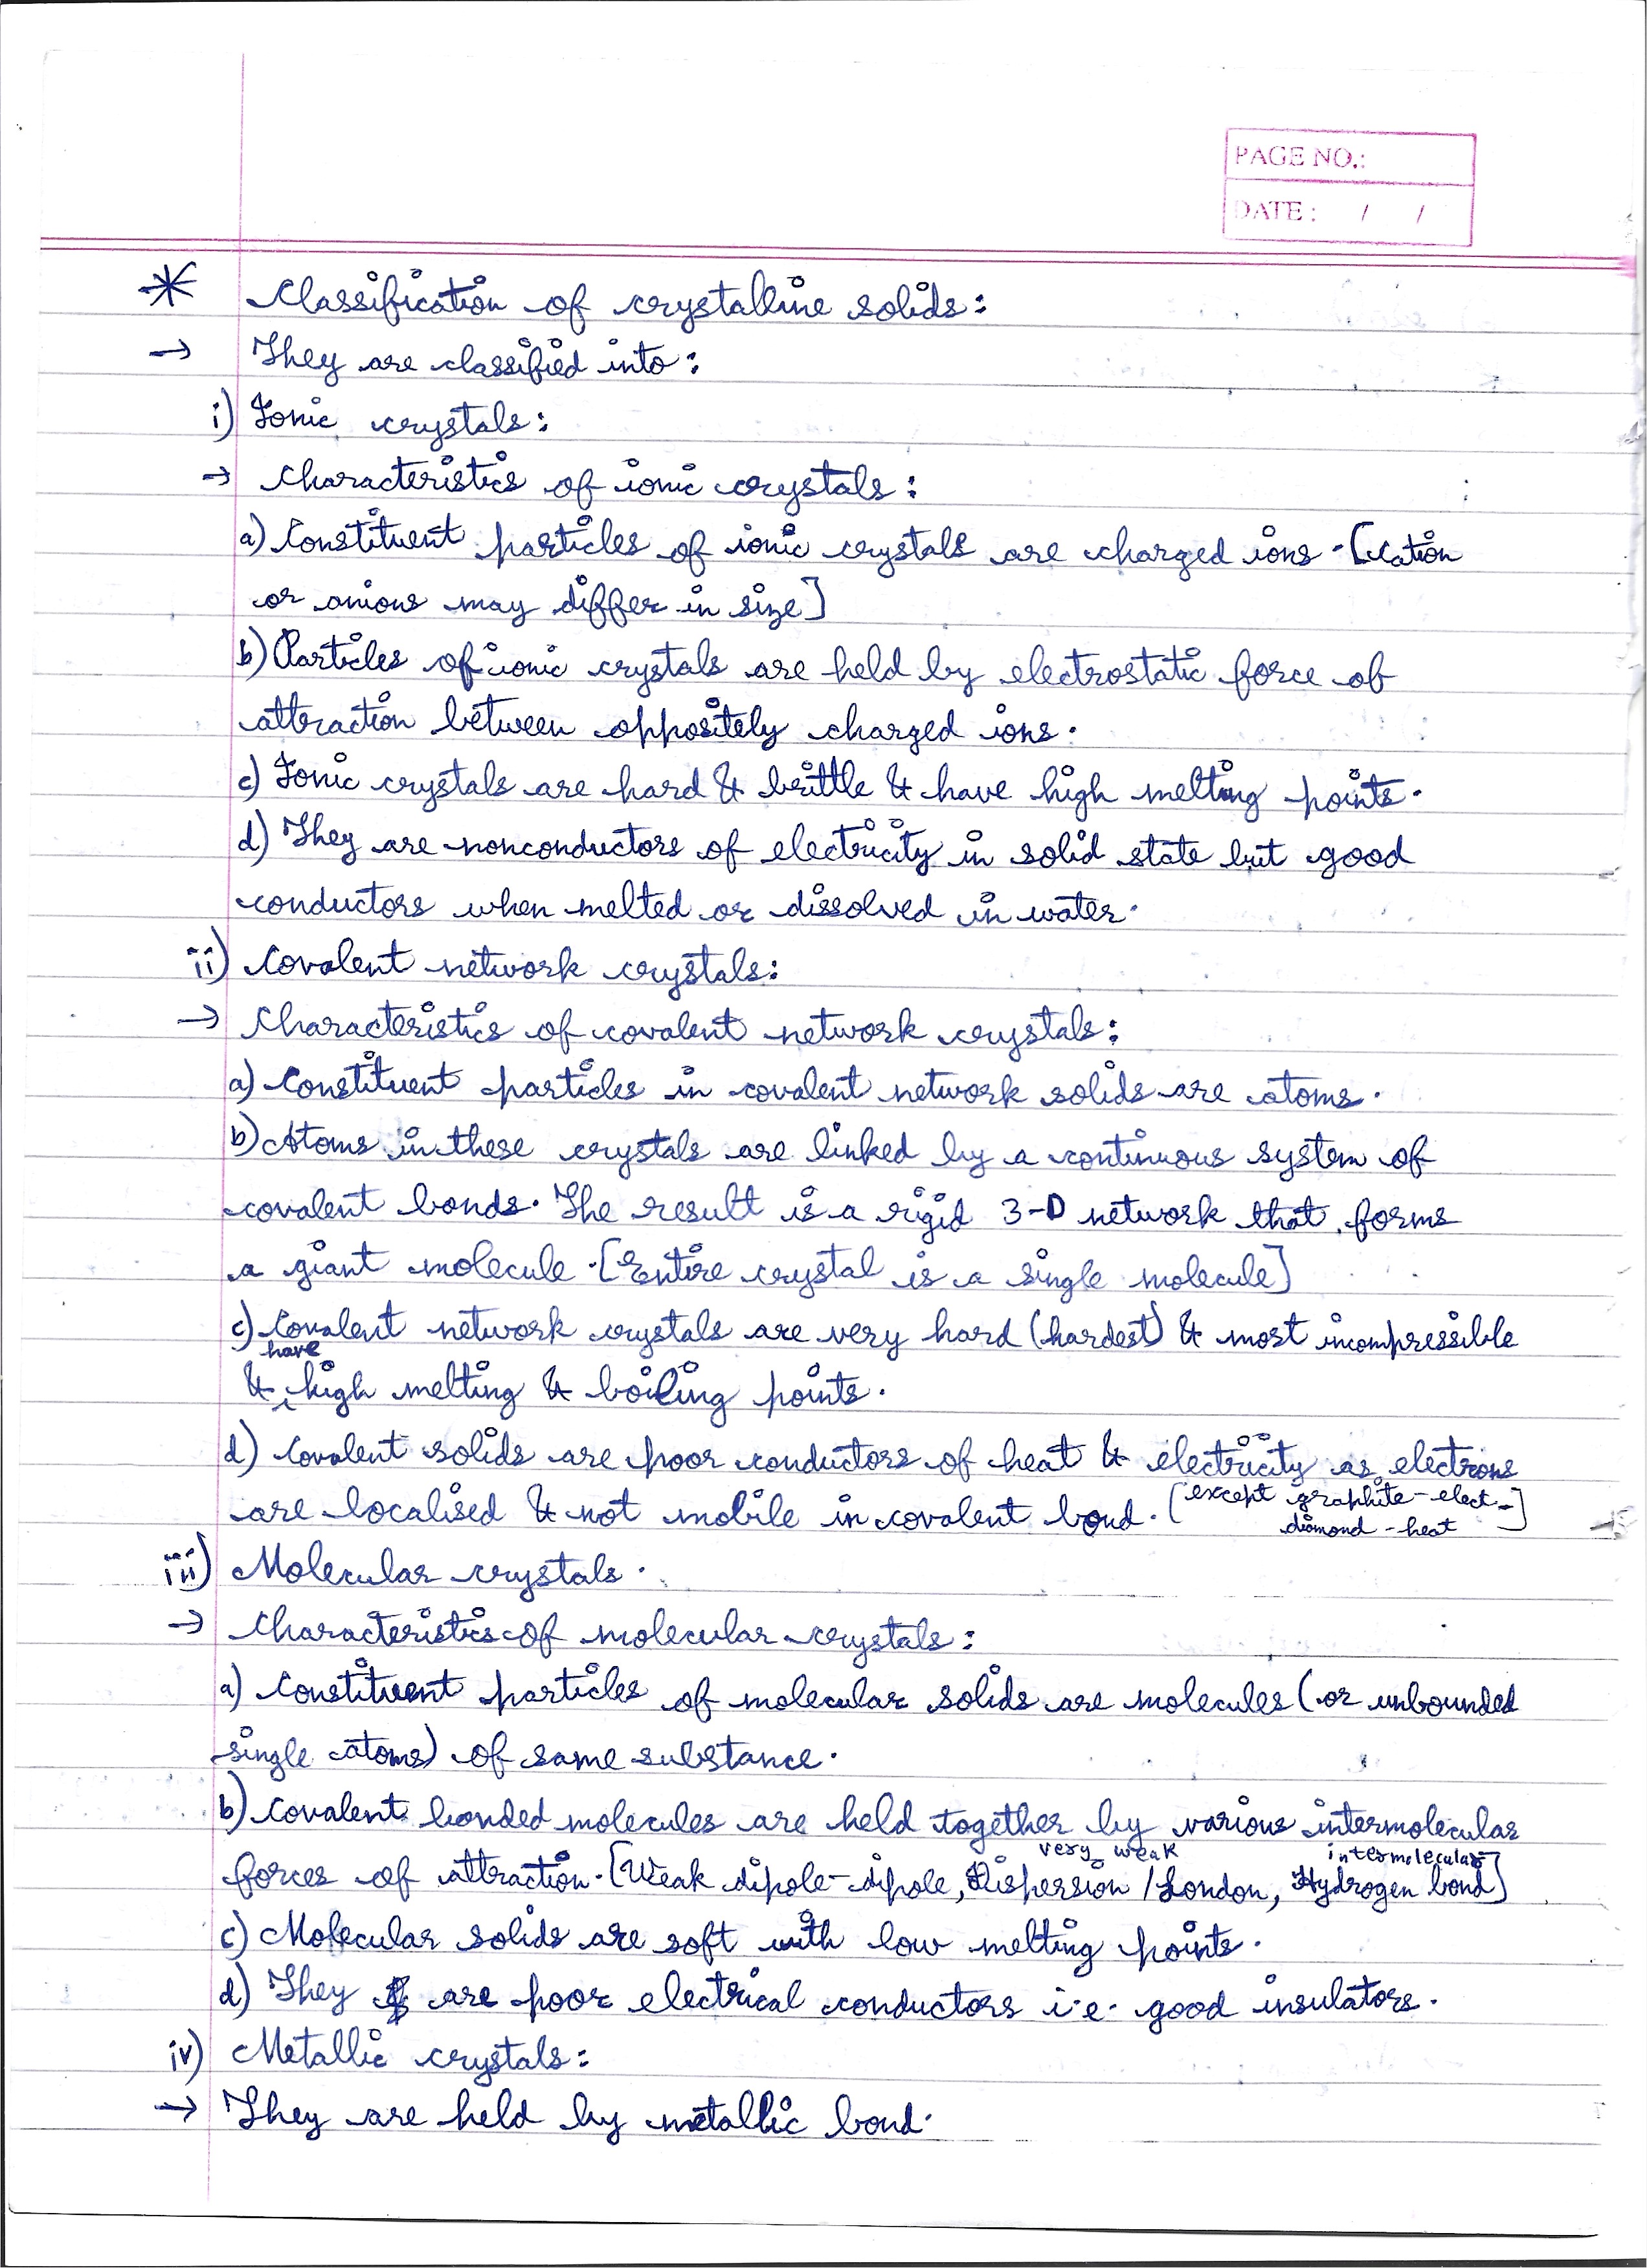 PAGE NO.:
DATE : / /
* Classification of crystalline solids:
→ They are classified into:
i) Ionic crystals:
→ Characteristics of ionic crystals:
a) Constituent particles of ionic crystals are charged ions. [cation
or anions may differ in size]
b) Particles of ionic crystals are held by electrostatic force of
attraction between oppositely charged ions.
c) Ionic crystals are hard & brittle & have high melting points.
d) They are nonconductors of electricity in solid state but good
conductors when melted or dissolved in water.
ii) Covalent network crystals:
→ Characteristics of covalent network crystals:
a) Constituent particles in covalent network solids are atoms.
b) Atoms in these crystals are linked by a continuous system of
covalent bonds. The result is a rigid 3-D network that forms
a giant molecule. [Entire crystal is a single molecule]
c) Covalent network crystals are very hard (hardest) & most incompressible
have
& high melting & boiling points.
d) Covalent solids are poor conductors of heat & electricity as electrons
are localised & not mobile in covalent bond. [except graphite - elect -
diamond - heat]
iii) Molecular crystals.
→ Characteristics of molecular crystals:
a) Constituent particles of molecular solids are molecules (or unbounded
single atoms) of same substance.
b) Covalent bonded molecules are held together by various intermolecular
very weak intermolecular
forces of attraction. [Weak dipole-dipole, Dispersion / London, Hydrogen bond]
c) Molecular solids are soft with low melting points.
d) They are poor electrical conductors i.e. good insulators.
iv) Metallic crystals:
→ They are held by metallic bond.